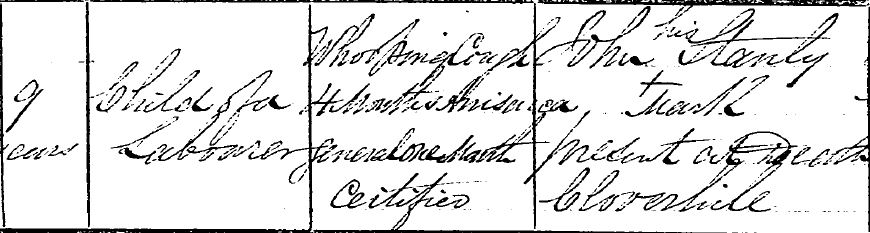 9
years
Child of a
Labourer
Whooping Cough
4 Months Anisarca
general one Month
Certified
John his Stanly
Mark
present at Death
Cloverhill